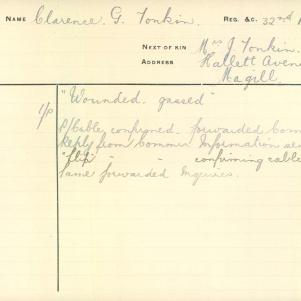 NAME Clarence. G. Tonkin. REG. &C. 32nd
NEXT OF KIN Mrs J. Tonkin.
ADDRESS Hallett Aven
Magill.
"Wounded. gassed"
1/P P/Cable confirmed. forwarded Com
Reply from Commn. Information
" " confirming cable
same forwarded Inquiries.